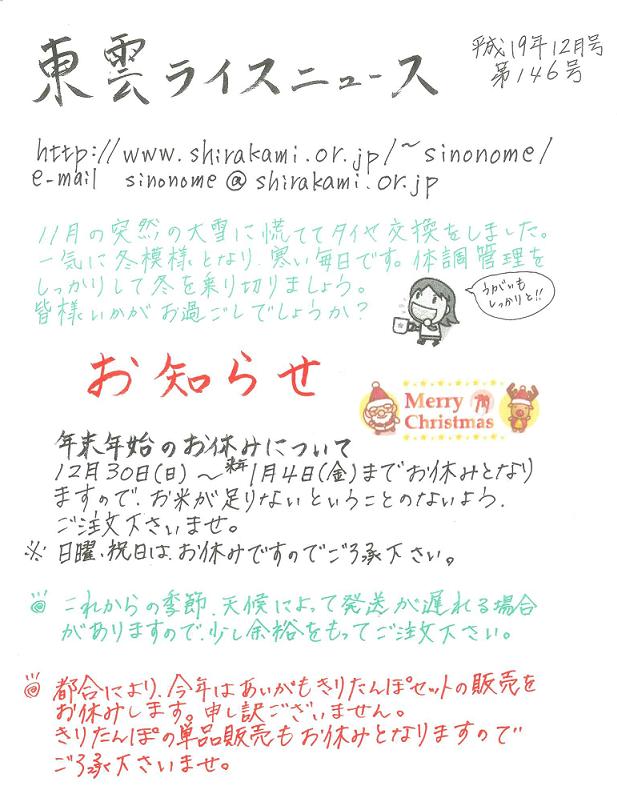 東雲ライスニュース
平成19年12月号
第146号
http://www.shirakami.or.jp/~sinonome/
e-mail sinonome@shirakami.or.jp
11月の突然の大雪に慌ててタイヤ交換をしました。
一気に冬模様となり、寒い毎日です。体調管理を
しっかりして冬を乗り切りましょう。
皆様いかがお過ごしでしょうか?
うがいも
しっかりと!!
お知らせ
Merry
Christmas
年末年始のお休みについて
12月30日(日)〜来年1月4日(金)までお休みとなり
ますので、お米が足りないということのないよう、
ご注文下さいませ。
※日曜、祝日は、お休みですのでご了承下さい。
これからの季節、天候によって発送が遅れる場合
がありますので、少し余裕をもってご注文下さい。
都合により、今年はあいがもきりたんぽセットの販売を
お休みします。申し訳ございません。
きりたんぽの単品販売もお休みとなりますので
ご了承下さいませ。